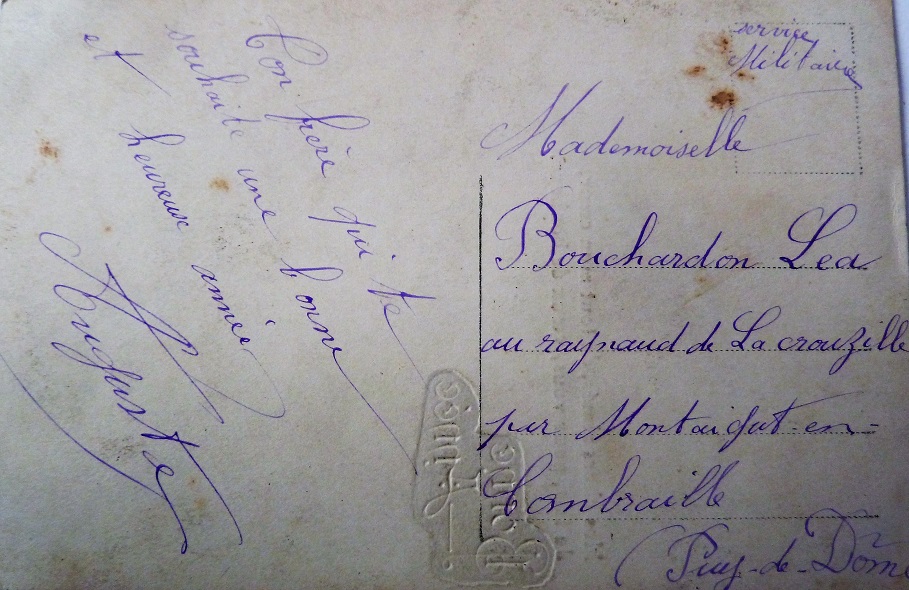 Ton frère qui te
souhaite une bonne
et heureuse année
Auguste
service
Militaire
Mademoiselle
Bouchardon Lea
au raynaud de La crouzille
par Montaigut-en-
Combraille
(Puy-de-Dôme